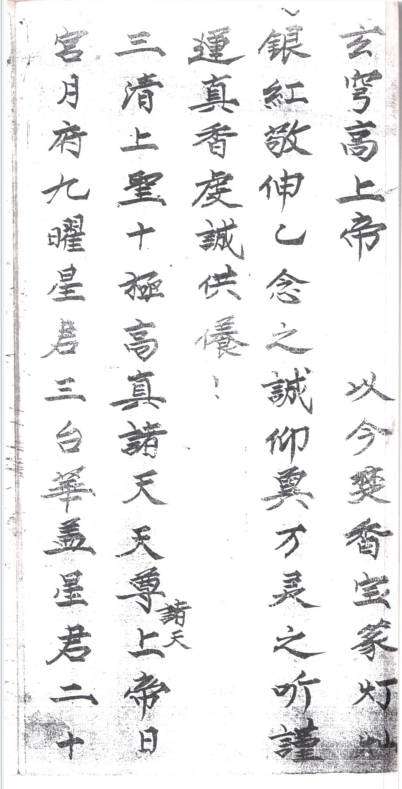 玄穹高上帝 以今焚香宝篆灯灿
銀紅敬伸乙念之誠仰奠万灵之听謹
運真香虔誠供養
三清上聖十極高真諸天天尊諸天上帝日
宮月府九曜星君三台華盖星君二十